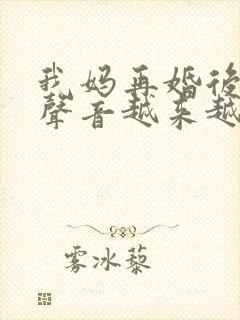 我妈再婚後
聲音越来越
雾冰藜